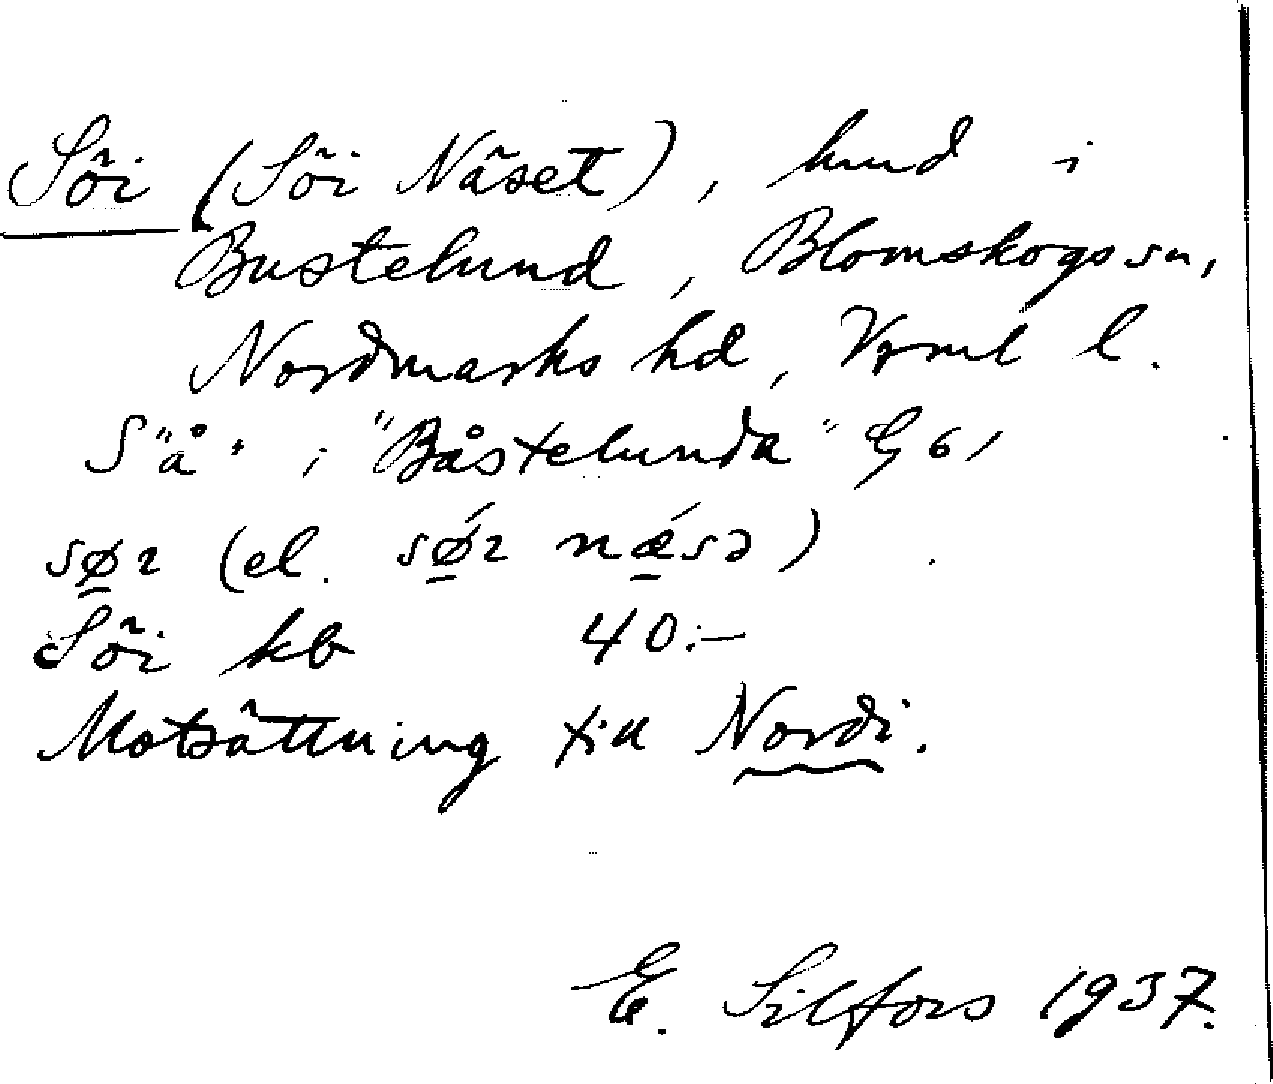 Söi (Söi Näset), hmd i
Bustelund, Blomskogs sn,
Nordmarks hd, Vrml l.
S"å" i "Båstelunda" G 61
sør (el. sǿr nǽsə)
Söi kb 40:-
Motsättning till Nordi.
E. Silfors 1937.